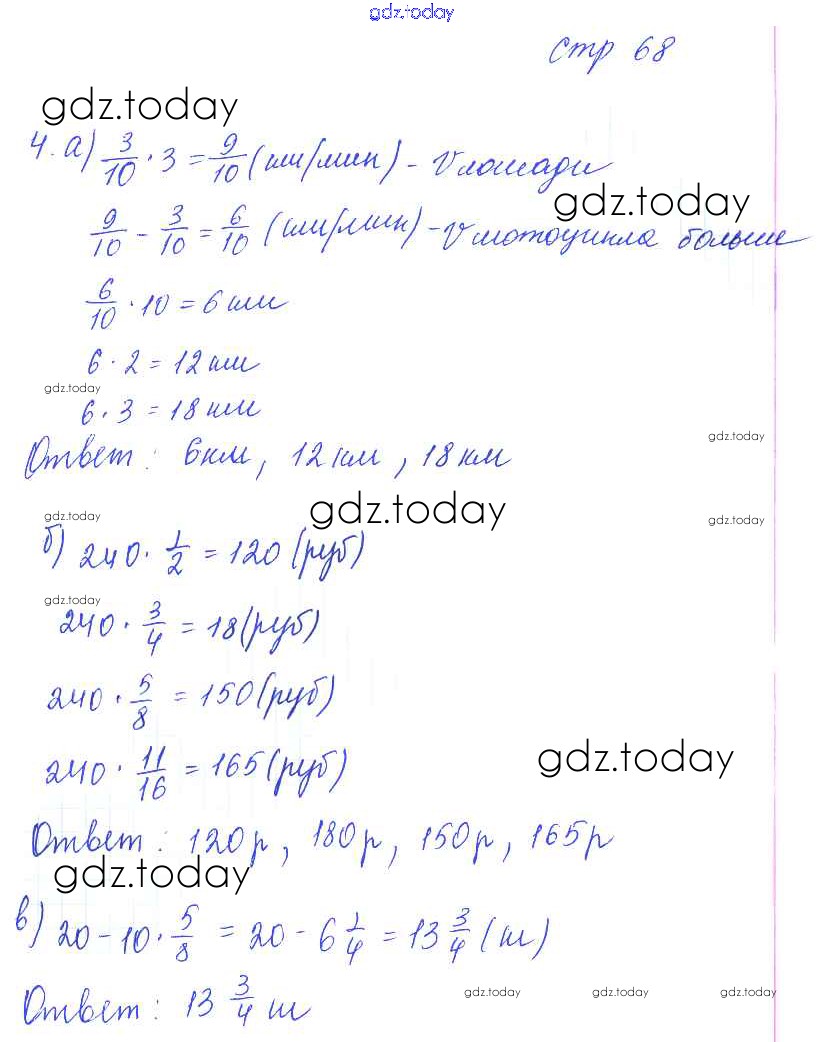 gdz.today
стр 68
gdz.today
4. а) 3/10 · 3 = 9/10 (км/мин) - V лошади
gdz.today
9/10 - 3/10 = 6/10 (км/мин) - V мотоцикла больше
6/10 · 10 = 6 км
6 · 2 = 12 км
gdz.today
6 · 3 = 18 км
gdz.today
Ответ: 6 км, 12 км, 18 км
gdz.today
gdz.today
gdz.today
б) 240 · 1/2 = 120 (руб)
gdz.today
240 · 3/4 = 18 (руб)
240 · 5/8 = 150 (руб)
gdz.today
240 · 11/16 = 165 (руб)
Ответ: 120 р, 180 р, 150 р, 165 р
gdz.today
в) 20 - 10 · 5/8 = 20 - 6 1/4 = 13 3/4 (м)
gdz.today gdz.today gdz.today
Ответ: 13 3/4 м